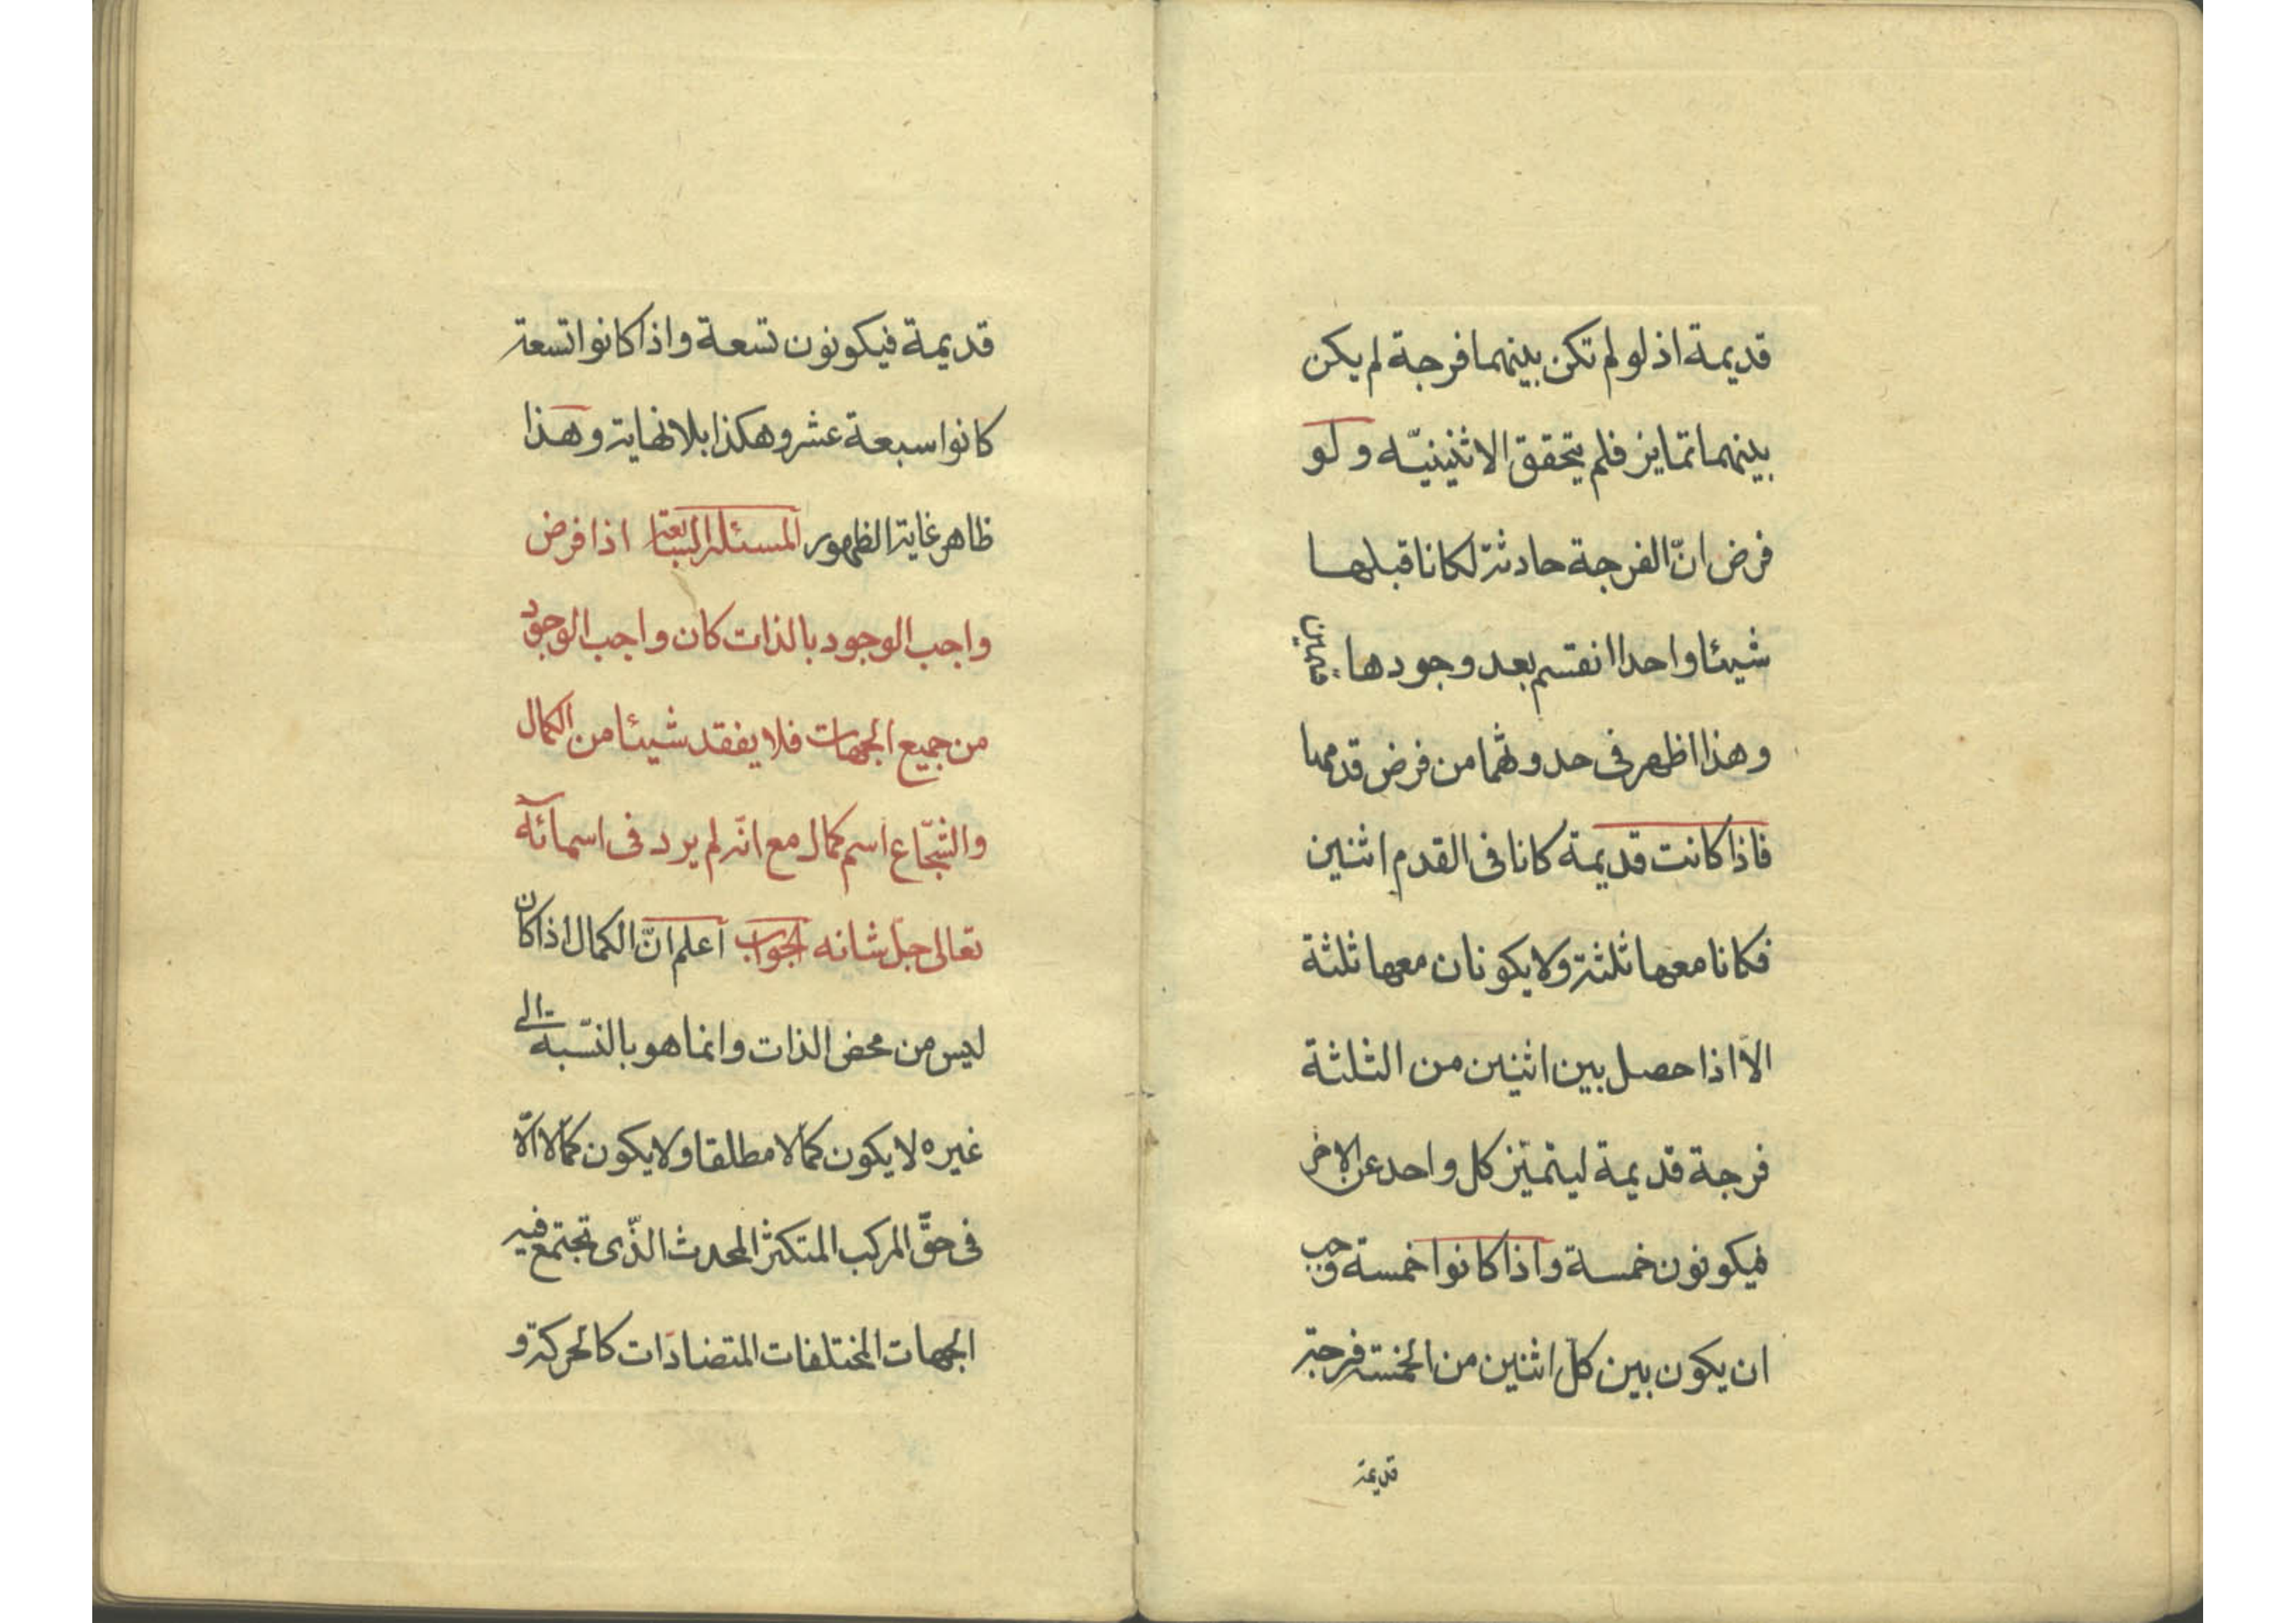 قديمة اذ لو لم تكن بينهما فرجة لم يكن
بينهما تمايز فلم يتحقق الاثنينيّه ولو
فرض انّ الفرجة حادثة لكانا قبلها
شيئا واحدا انقسم بعد وجودها
وهذا اظهر فى حدوثهما من فرض قدمهما
فاذا كانت قديمة كانا فى القدم اثنين
فكانا معها ثلثة ولا يكونان معها ثلثة
الّا اذا حصل بين اثنين من الثلثة
فرجة قديمة ليتميّز كل واحد عن الاخر
فيكونون خمسة واذا كانوا خمسة وجب
ان يكون بين كلّ اثنين من الخمسة فرجة
قديمة
قديمة فيكونون تسعة واذا كانوا تسعة
كانوا سبعة عشر وهكذا بلا نهاية وهذا
ظاهر غاية الظهور المسئلة السابعة اذا فرض
واجب الوجود بالذات كان واجب الوجود
من جميع الجهات فلا يفقد شيئا من الكمال
والشجّاع اسم كمال مع انّه لم يرد فى اسمائه
تعالى جلّ شانه الجواب اعلم انّ الكمال اذا كان
ليس من محض الذات وانما هو بالنسّبة الى
غيره لا يكون كمالا مطلقا ولا يكون كمالا الّا
فى حقّ المركب المتكثر المحدث الذّى تجتمع فيه
الجهات المختلفات المتضادّات كالحركة و